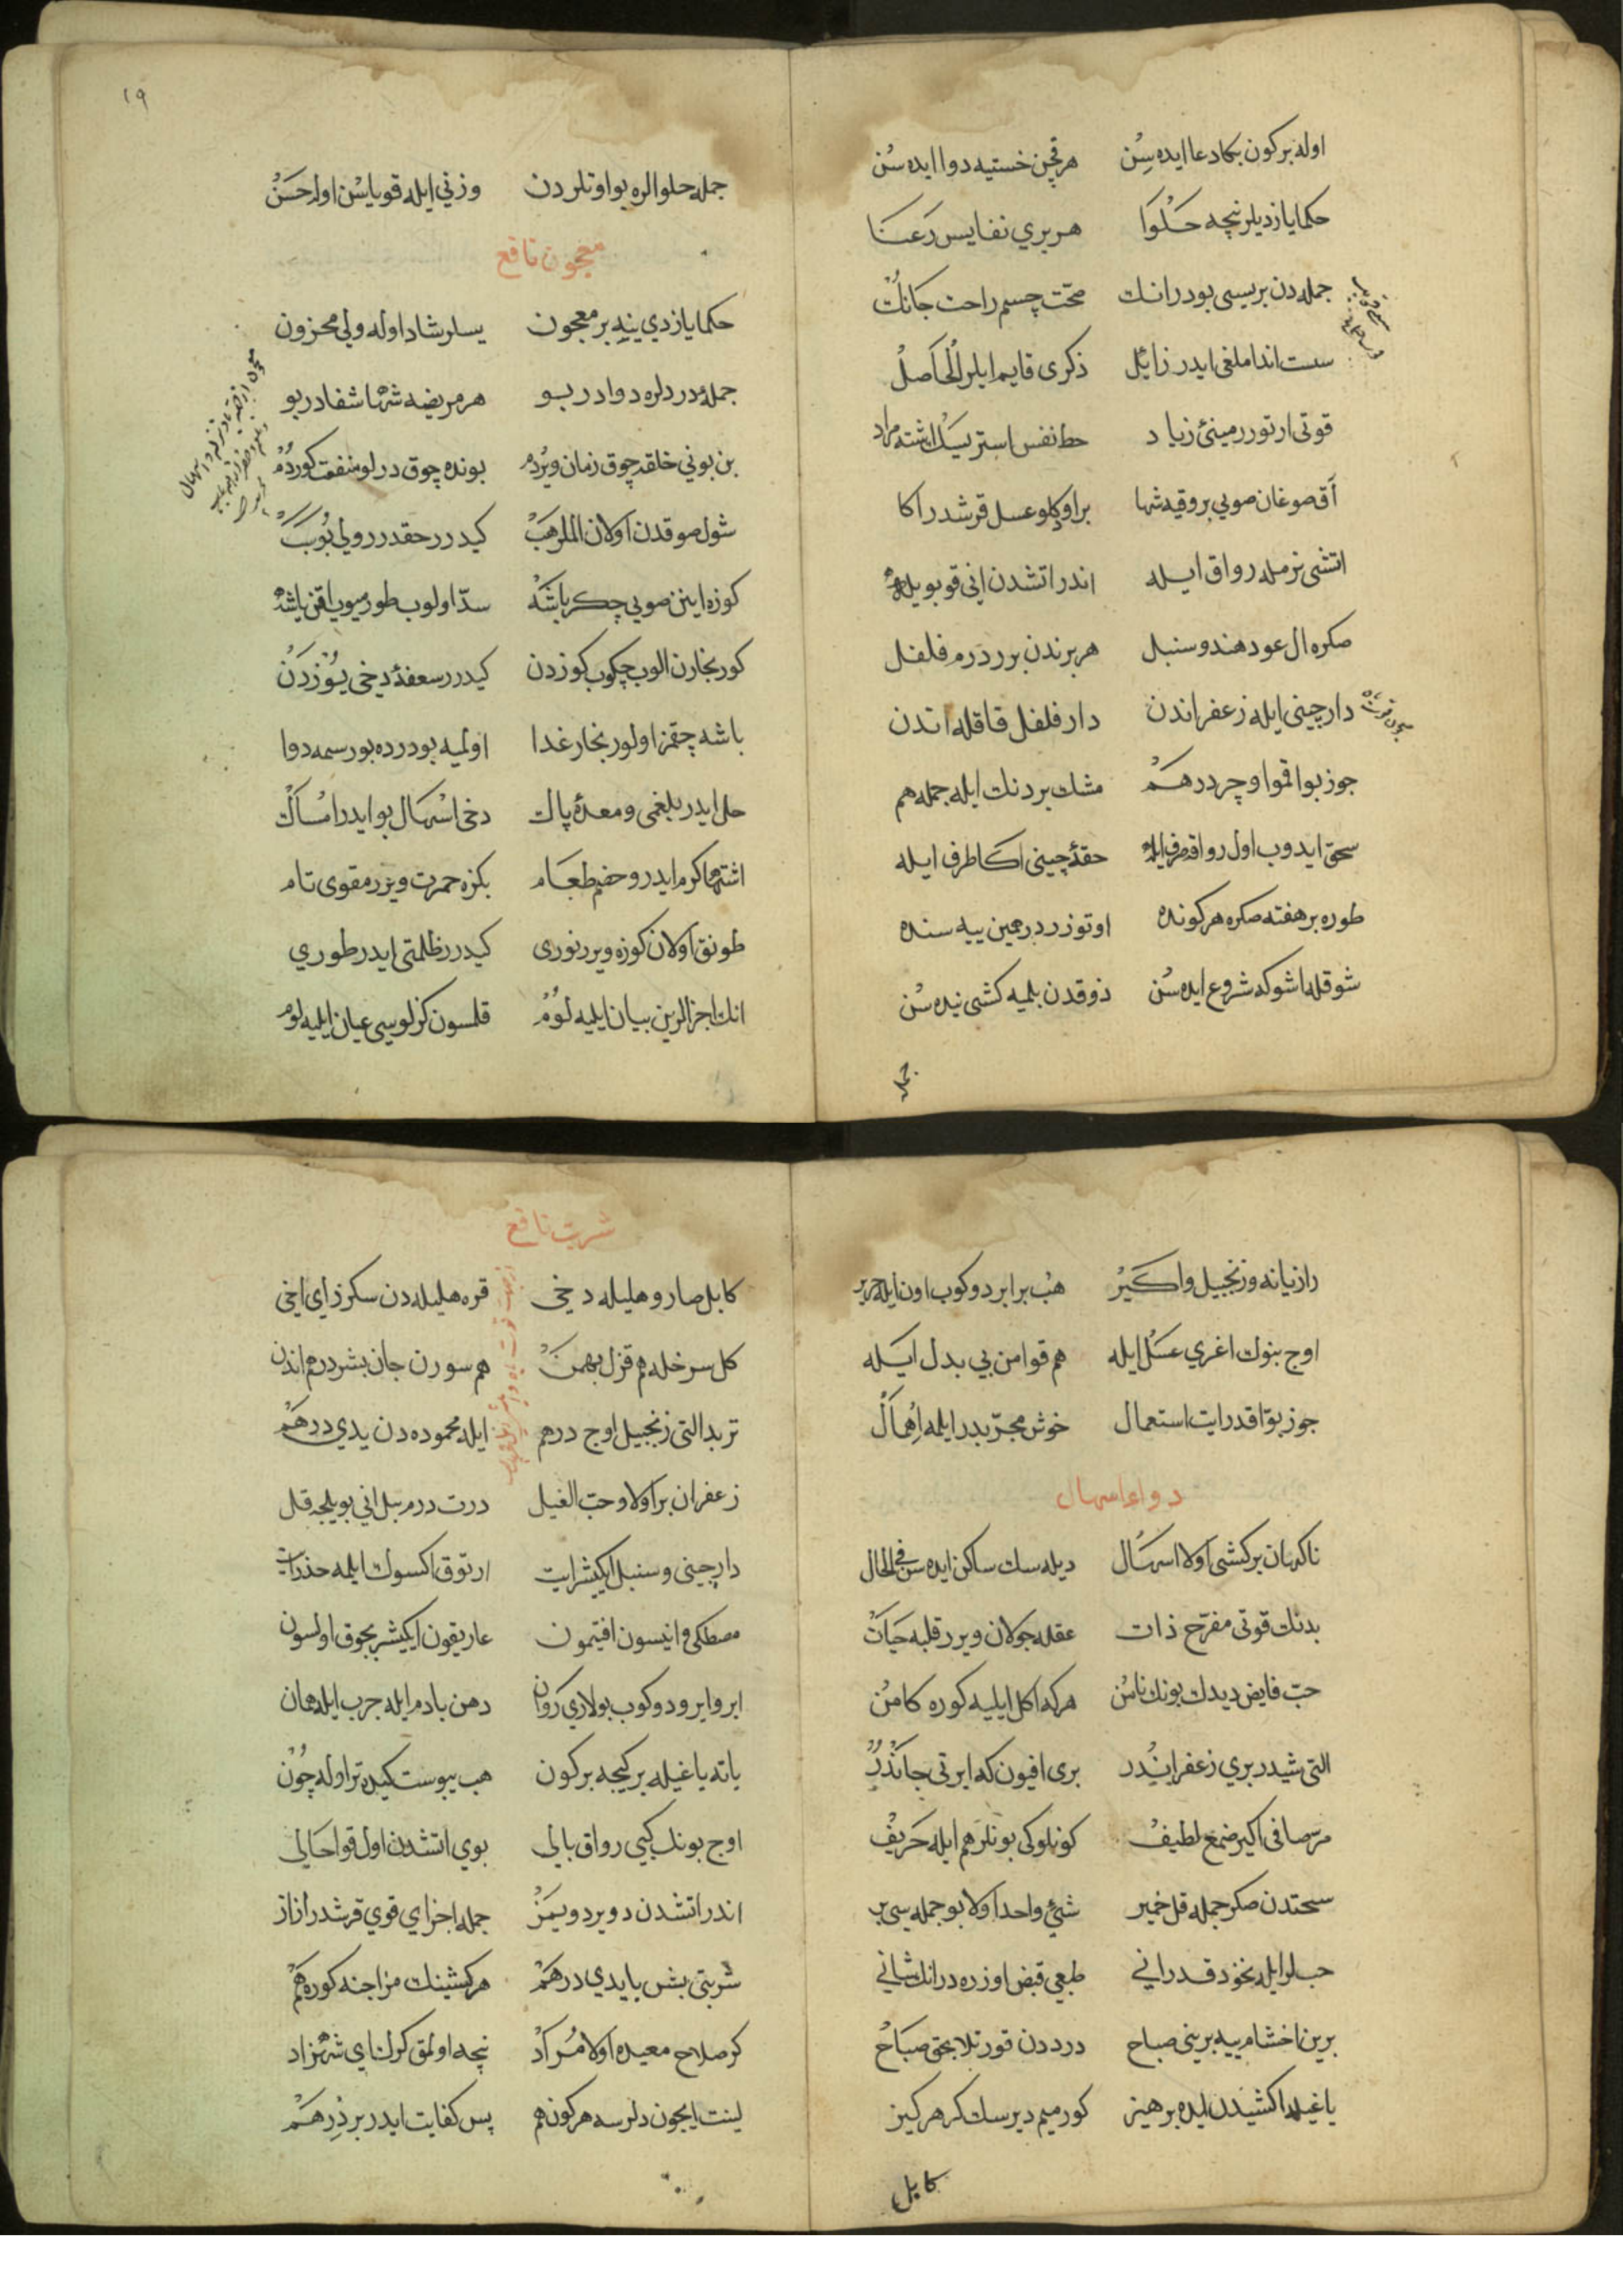 اوله بر كون بكا دعا ايده سن هر قچن خستيه دوا ايده سن
حكما يازديلر نچه حلوا هر بري نفايس رعنا
جمله دن بريسى بودر انك صحّت جسم راحت جانك
سست انداملغى ايدر زائل ذكرى قايم ايلر الحاصل
قوتى ارتورر مينئ زياد حط نفس استر يسك اشته مراد
آق صوغان صويى بر وقيه شها بر اوكلو عسل قرشدر اكا
اتشى نرمله رواق ايله اندر اتشدن انى قو بويله
صكره ال عود هند و سنبل هر برندن برر درم فلفل
دارچينى ايله زعفراندن دار فلفل قاقله اندن
جوز بوا قمو اوچر درهم مشك بر دنك ايله جمله هم
سحق ايدوب اول رواقه صرف ايله حقۀ چينى اكا طرف ايله
طوره بر هفته صكره هر كونده اوتوزر درهمين ييه سنده
شوقله اشوكه شروع ايده سن ذوقدن بلميه كشى نيده سن
جمله
١٩
جمله حلوالره بو اوتلردن وزنى ايله قوياسن اوله حسن
معجون نافع
حكما يازدي ينه بر معجون يسلر شاد اوله ولى محزون
جملۀ دردلره دوادر بو هر مريضه شها شفادر بو
بن بونى خلقه چوق زمان ويردم بونده چوق درلو منفعت كوردم
شول صوقدن اولان الملر هب كيدرر حقدر رولى بو سبب
كوزه اينن صويى چكر باشه سدّ اولوب طورميوب اقن ياشه
كور بخارن الوب چكوب كوزدن كيدرر سعفۀ دخى يوزدن
باشه چقمز اولور بخار غدا اولميه بو درده بو رسمه دوا
حل ايدر بلغمى و معدۀ پاك دخى اسهال بو ايدر امساك
اشتها كرم ايدر و هضم طعام بكزه حمرت ويرر مقوى تام
طونق اولان كوزه ويرر نورى كيدرر ظلمتى ايدر طوري
انك اجزالرين بيان ايليه لوم قلسون كزلوسى عيان ايليه لوم
رازيانه و زنجبيل و اكير هب برابر دوكوب اون ايله حرير
اوج بنوك اغري عسل ايله هم قوامن بى بدل ايله
جوز بوّا قدر ايت استعمال خوش مجرّبدر ايلمه اهمال
دواء اسهال
ناكهان بر كشى اولا اسهال ديله سك ساكن ايده سن فى الحال
بدنك قوتى مفرّح ذات عقله جولان ويرر قلبه حيات
حبّ فايض ديدك بونك نامن هر كه اكل ايليه كوره كامن
التى شيدر بري زعفراندر برى افيون كه ايرتى جاندر
مر صافى اكير صمغ لطيف كونلوكى بونلر هم ايله حريف
سحقدن صكره جمله قل خمير شئ واحد اولا بو جمله سى بر
حب لر ايله نخود قدر انى طبعى قبض اوزره در انك شانى
برين اخشام ييه برينى صباح درددن قورتلا بحق صباح
ياغيله اكشيدن ايله پرهيز كورميم ديرسك كر هركيز
كابل
شربت نافع
كابل صارو هليله دخى قره هليله دن سكز ذاى اخى
كل سرخله هم قزل بهمن هم سورنجان بشر درم اندن
تربد التى زنجبيل اوج درهم ايله محموده دن يدي درهم
زعفران بر اولا و حبّ النيل درت درم بيل انى بويلجه قل
دارچينى و سنبل ايكيشر ايت ارتوق اكسوك ايلمه حذر ايت
مصطكى و انيسون افتيمون غاريقون ايكيشر بچوق اولسون
ايرو ايرو دوكوب بولاري روان دهن بادم ايله چرب ايله همان
ياته ياغيله بر كيجه بر كون هب يبوست كيده تر اوله چون
اوج بونك كبى رواق بالى بوي اتشدن اول قوا حالى
اندر اتشدن دويردويمز جمله اجزاي قوي قرشدر از از
شربتى بش يا يدي درهم هر كشينك مزاجنه كوره هم
كر صلاح معيده اولا مراد نيجه اولمق كرك اي شهزاد
لينت ايچون دلرسه هر كون هم پس كفايت ايدر بر درهم